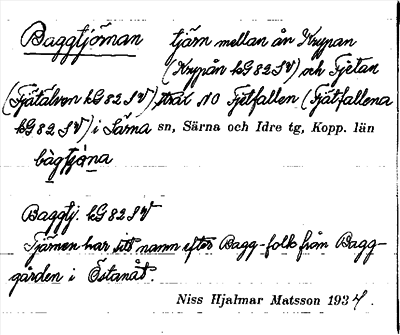 Baggtjöman tjärn mellan ån Krypan
(Krypån kG82SV) och Fjetan
(Fjätälven kG82SV), strax NO Fjetfallen (Fjätfallena
kG82SV) i Särna sn, Särna och Idre tg, Kopp. län
bàgtjö̀na
Baggtj. kG82SV
Tjärnen har sitt namn efter Bagg-folk från Bagg-
gården i Östanåt.
Niss Hjalmar Matsson 1934.